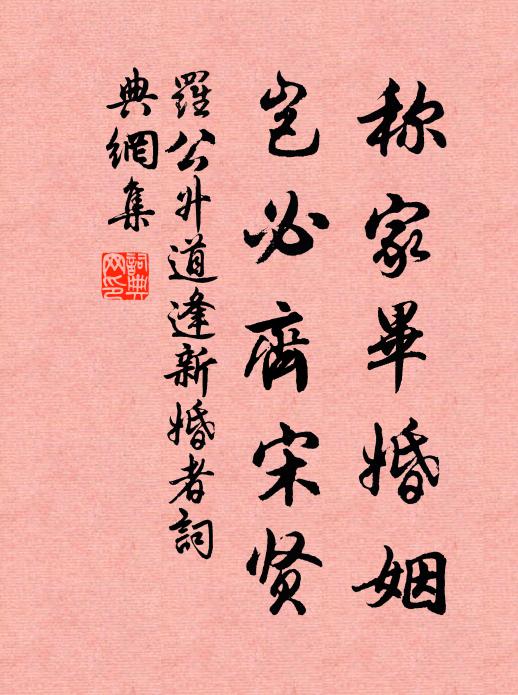 称家畢婚姻
豈必齊宋贤
羅公升道逢新婚者詞
典網集
詞典
网印